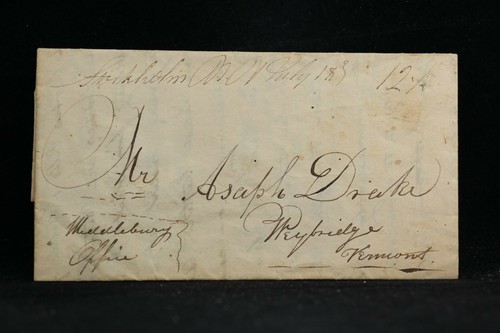 Stockholm N Y July 18th 12½
Mr Asaph Drake
Weybridge
Vermont.
Middlebury
Office